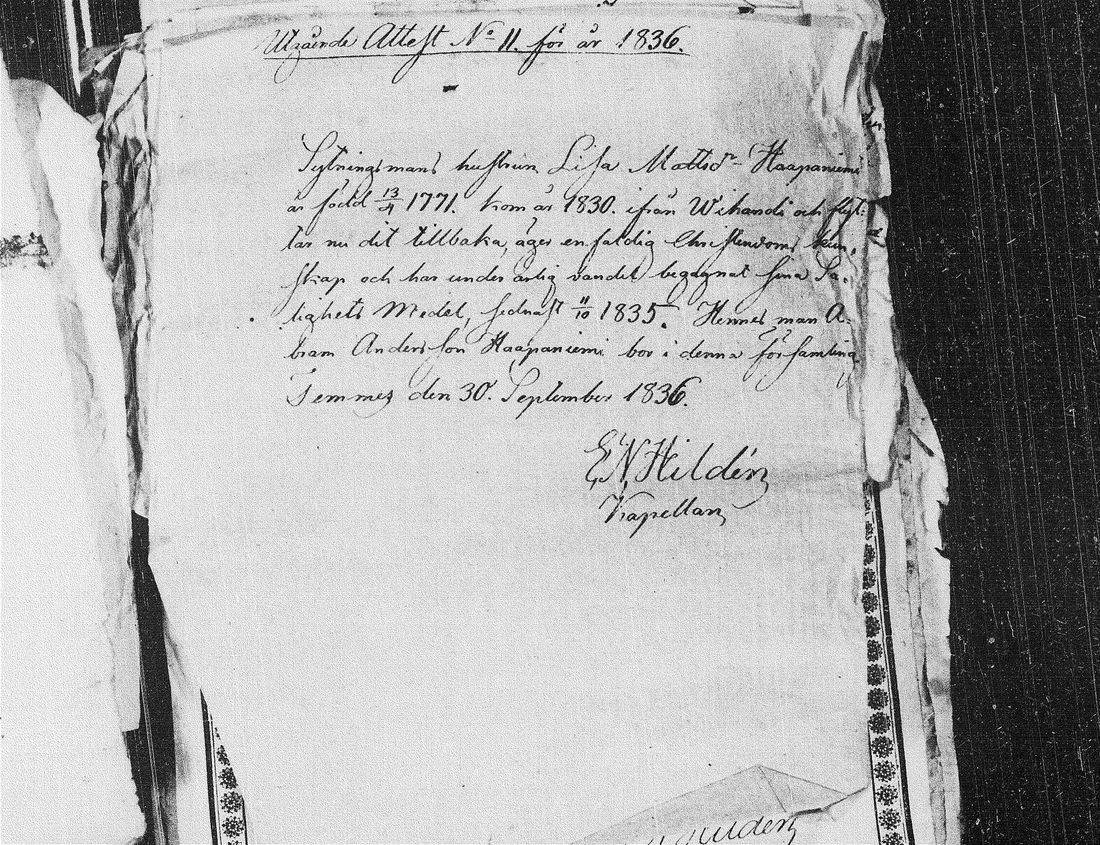 Utgående Attest No 11. för år 1836.
Sytningsmans hustrun Lisa Mattsdr Haapaniemi
är född 13/4 1771. kom år 1830. ifrån Wihandi och flyt-
tar nu dit tillbaka, äger enfaldig Christendoms kun-
skap och har under ärlig vandel begagnat sina Sa-
lighets Medel, sednast 11/10 1835. Hennes man A-
bram Andersson Haapaniemi bor i denna församling
Temmes den 30. September 1836.
E, N, Hildén
Kapellan